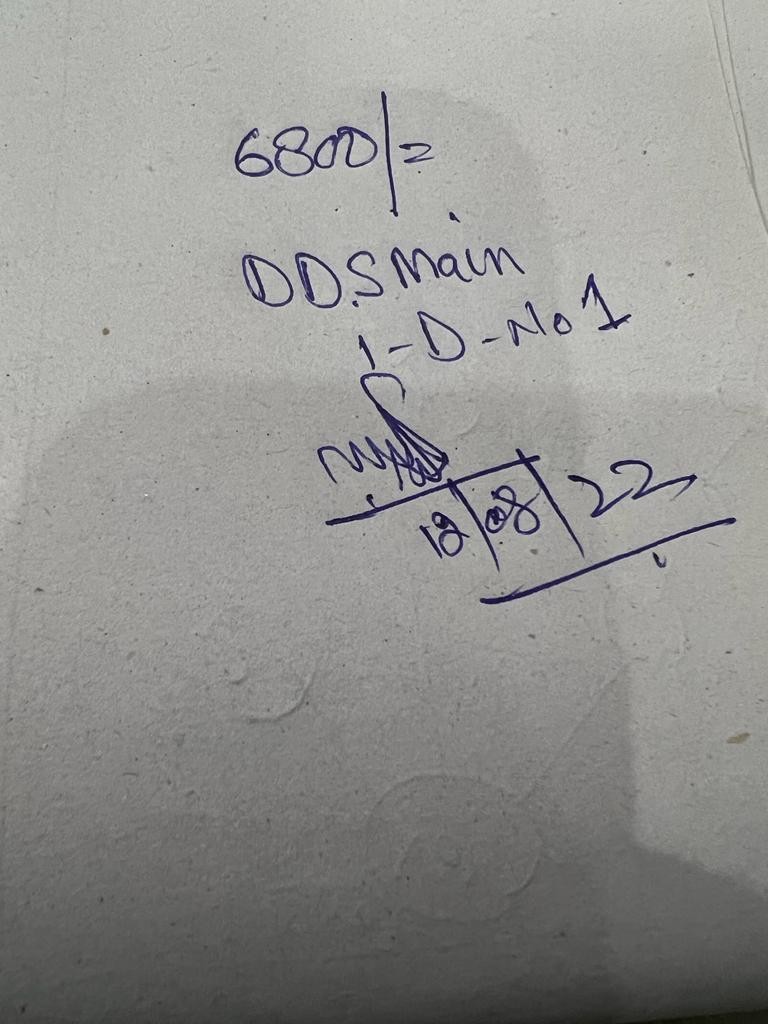 6800/=
DD.S Main
I-D-No 1
18/08/22